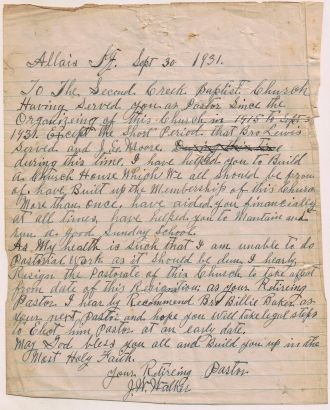 Allais Ky. Sept 30 1931.
To The Second Creek Baptist Church
Having Served you as Pastor Since the
Organizeing of this Church in 1915 to Sept
1931. Except the Short Period that Bro Lewis
Served and J.E. Moore
during this time. I have helped you to Build
a Church House Which We all Should be Proud
of, have Built up the Membership of this Church
More than once, have aided you financially
at all times, have helped you to Mantain and
run a good Sunday School.
As My health is Such that I am unable to do
Pastorial Work as it should be dun, I hearly
Resign the Pastorate of this Church to take affect
from date of this Resignation, as your Retireing
Pastor. I hearly Recommend Bro Billie Baker as
Your next Pastor and hope you will take legal steps
to Elect him Pastor at an early date.
May God bless you all and Build you up in the
Most Holy Faith.
Your Retireing Pastor
J.W. Walker